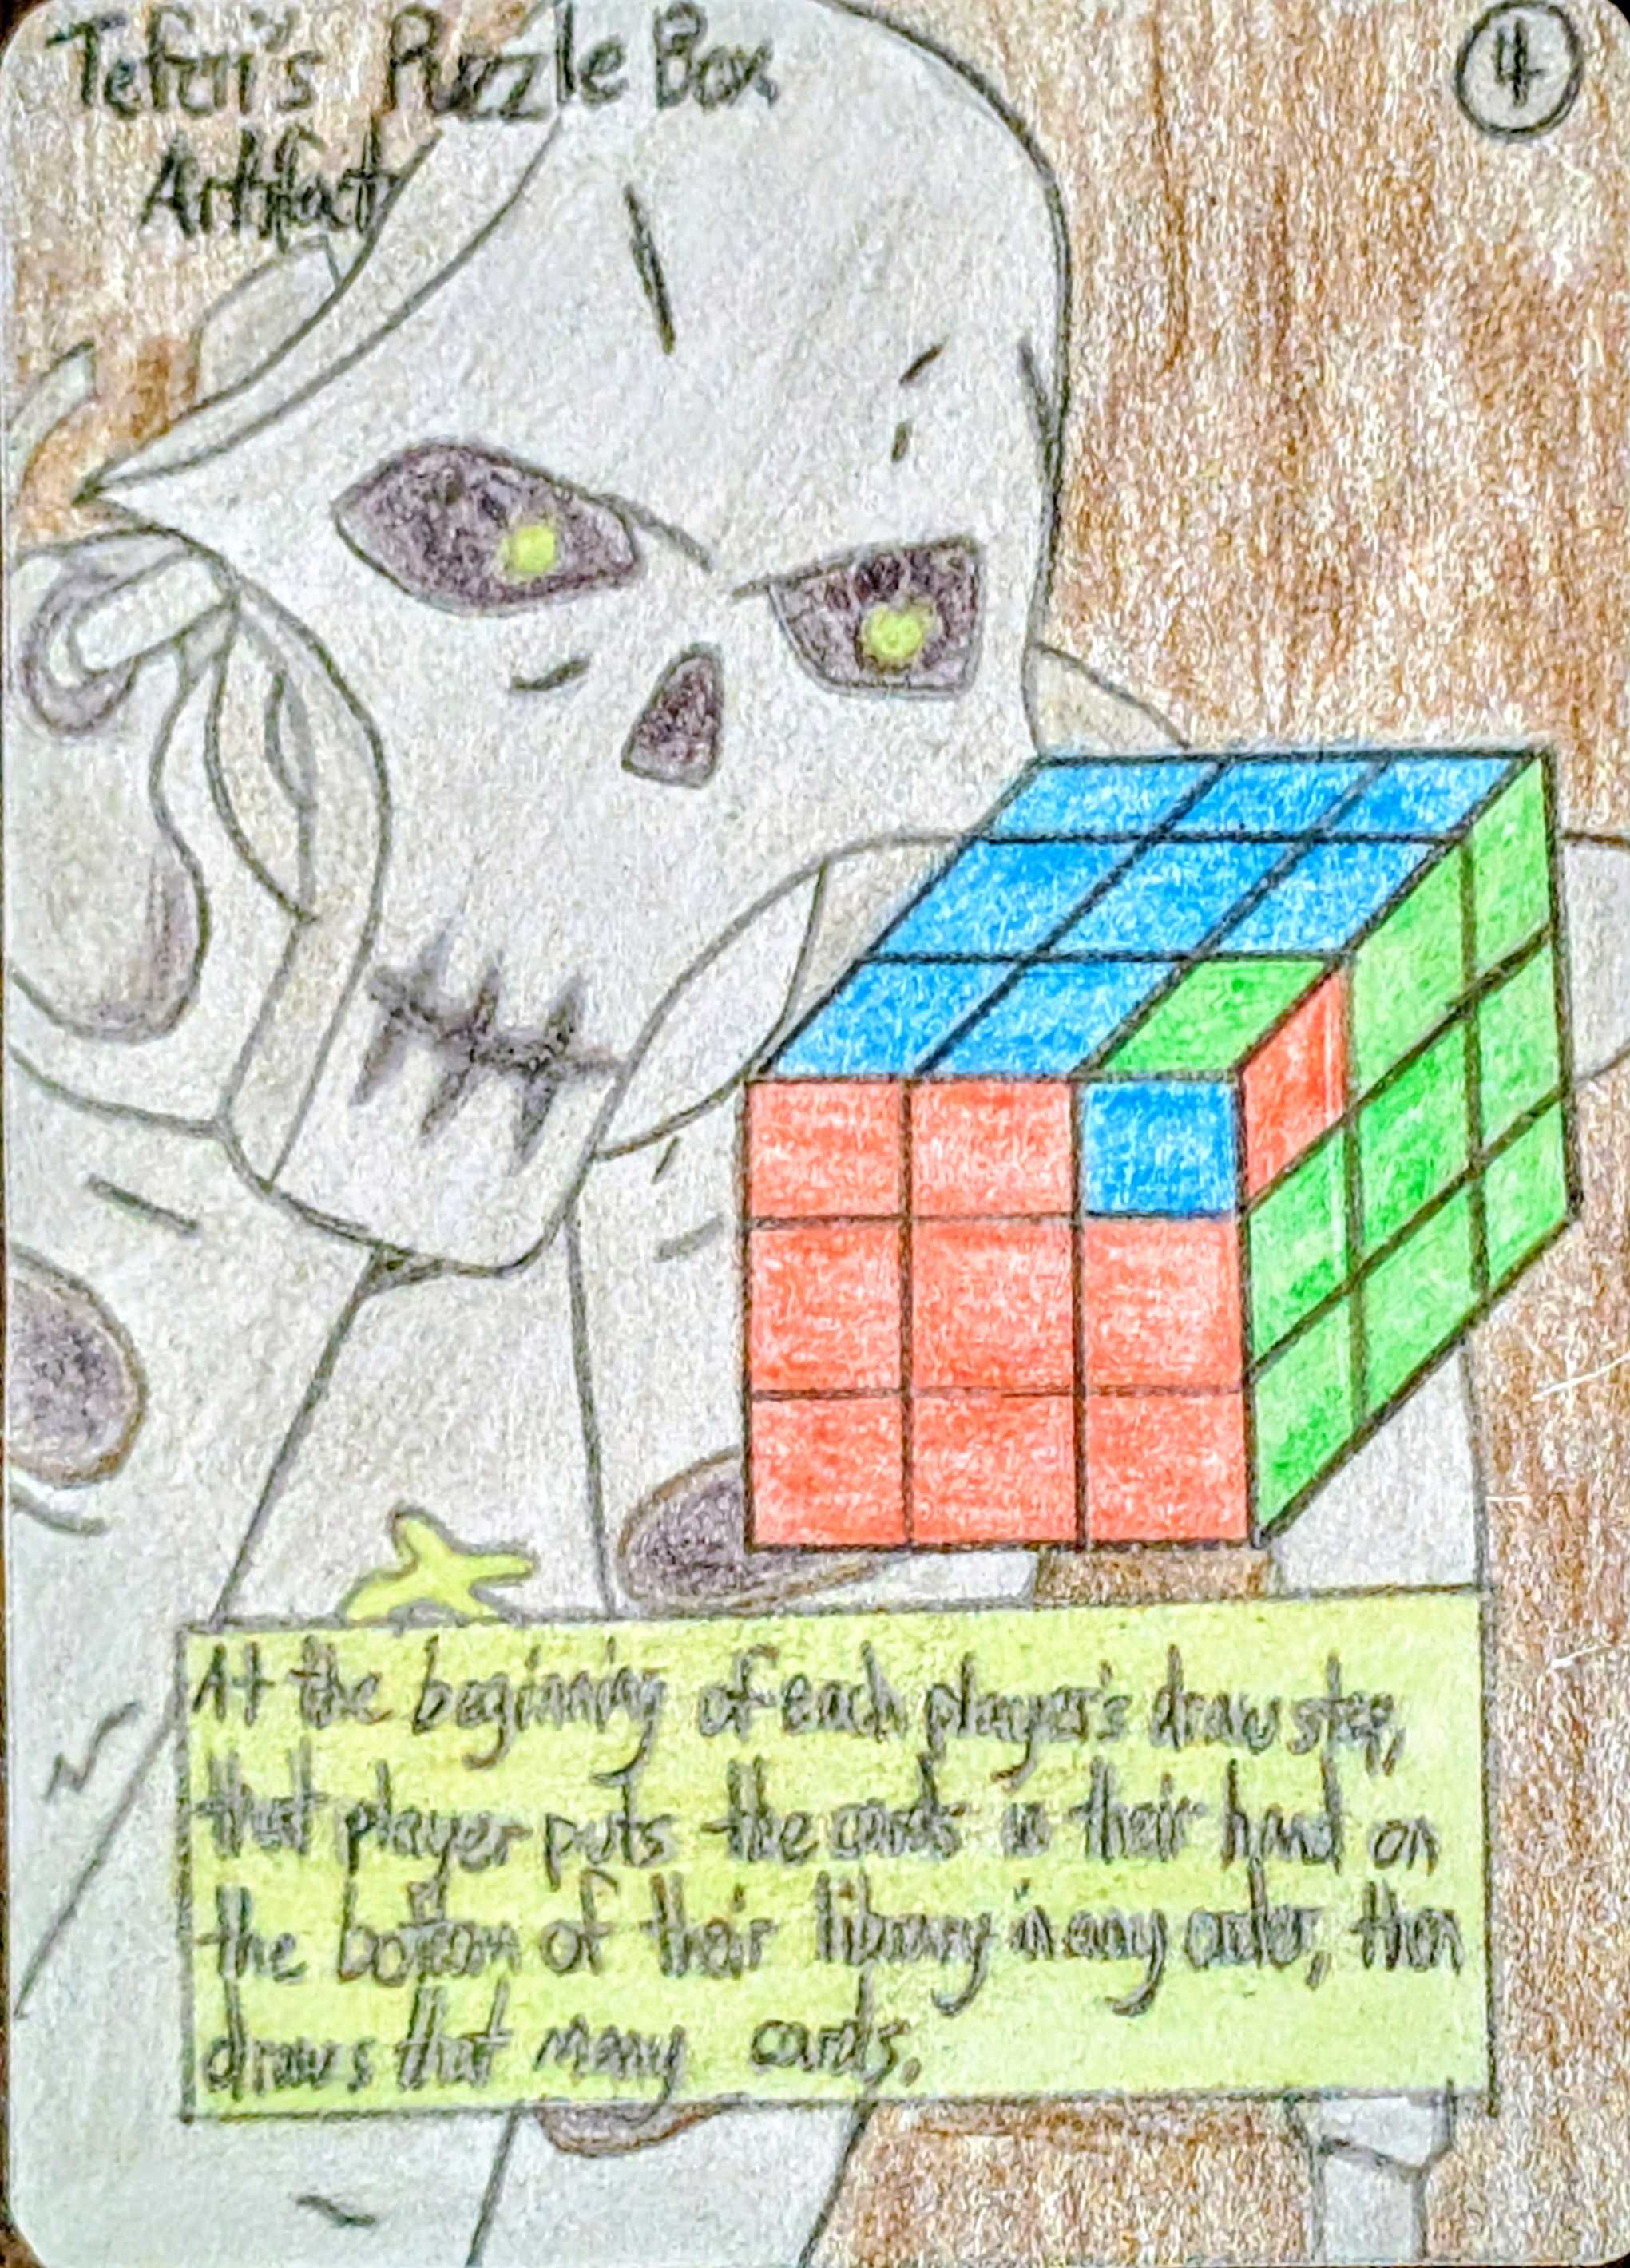 Teferi's Puzzle Box
4
Artifact
At the beginning of each player's draw step,
that player puts the cards in their hand on
the bottom of their library in any order, then
draws that many cards.